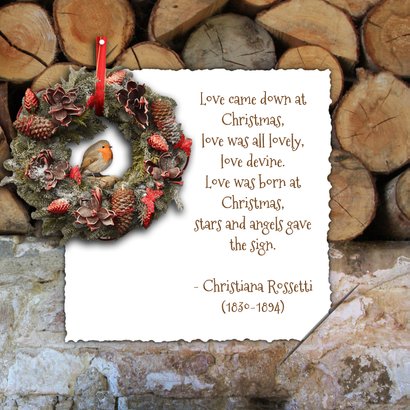 Love came down at
Christmas,
love was all lovely,
love devine.
Love was born at
Christmas,
stars and angels gave
the sign.
- Christiana Rossetti
(1830-1894)